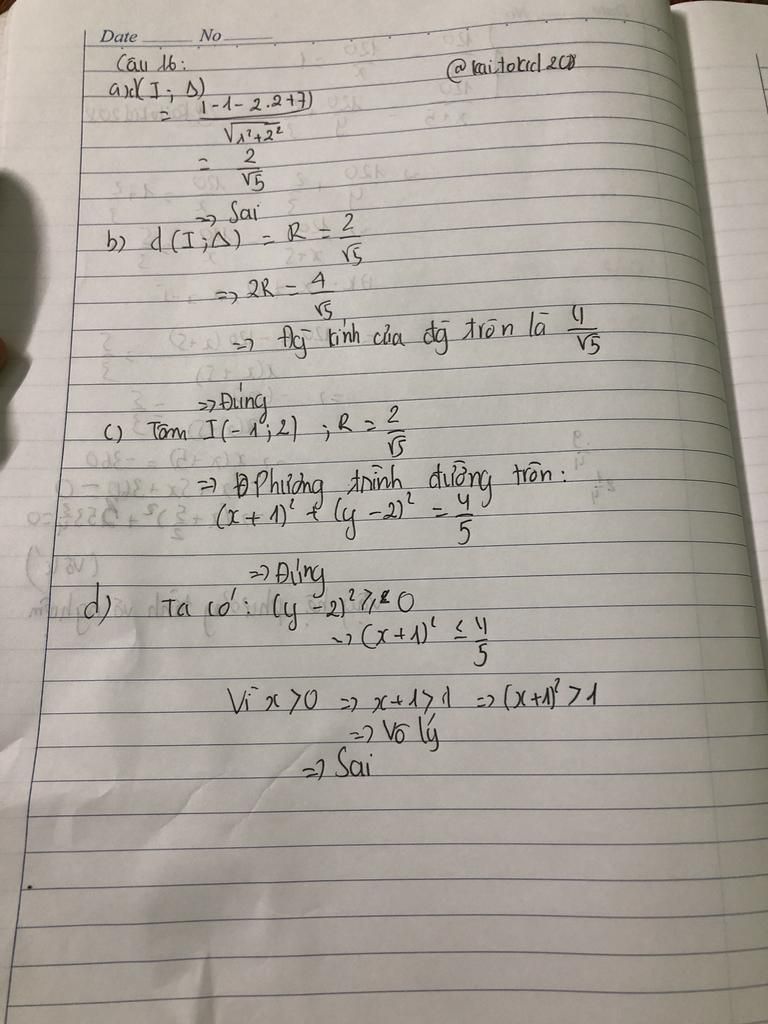 Date No
Câu 16:
@kaitokid2008
a) d(I; Δ)
= |-1-2.2+7|
√1²+2²
= 2
√5
=> Sai
b) d(I;Δ) = R = 2
√5
=> 2R = 4
√5
=> Đg kính của đg tròn là 4
√5
=> Đúng
c) Tâm I(-1;2) ; R = 2
√5
=> Phương trình đường tròn:
(x+1)² + (y-2)² = 4
5
=> Đúng
d) Ta có: (y-2)² ≥ 0
=> (x+1)² ≤ 4
5
Vì x>0 => x+1>1 => (x+1)²>1
=> Vô lý
=> Sai